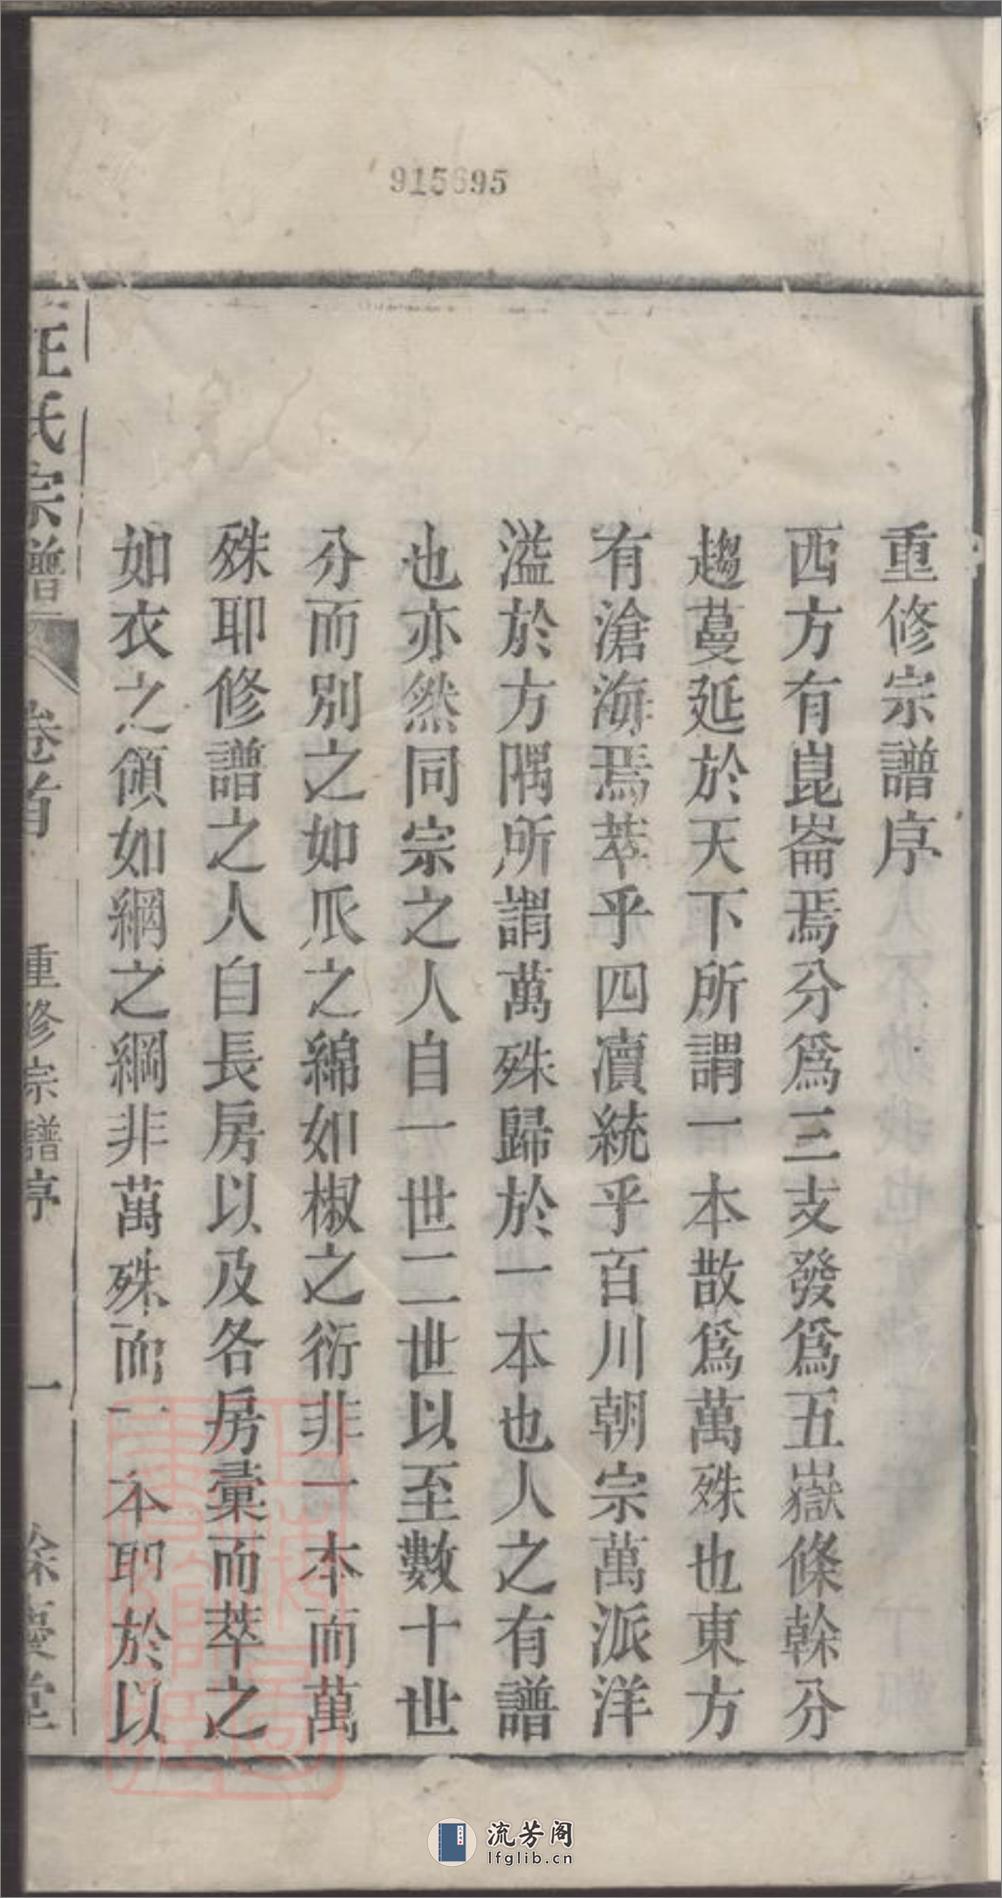 915695
重修宗譜序
西方有崑崙焉分爲三支發爲五嶽條榦分
趨蔓延於天下所謂一本散爲萬殊也東方
有滄海焉萃乎四瀆統乎百川朝宗萬派洋
溢於方隅所謂萬殊歸於一本也人之有譜
也亦然同宗之人自一世二世以至數十世
分而別之如瓜之綿如椒之衍非一本而萬
殊耶修譜之人自長房以及各房彙而萃之
如衣之領如綱之綱非萬殊而一本耶於以
汪氏宗譜 卷首 重修宗譜序 一 餘慶堂
流芳阁
lfglib.cn